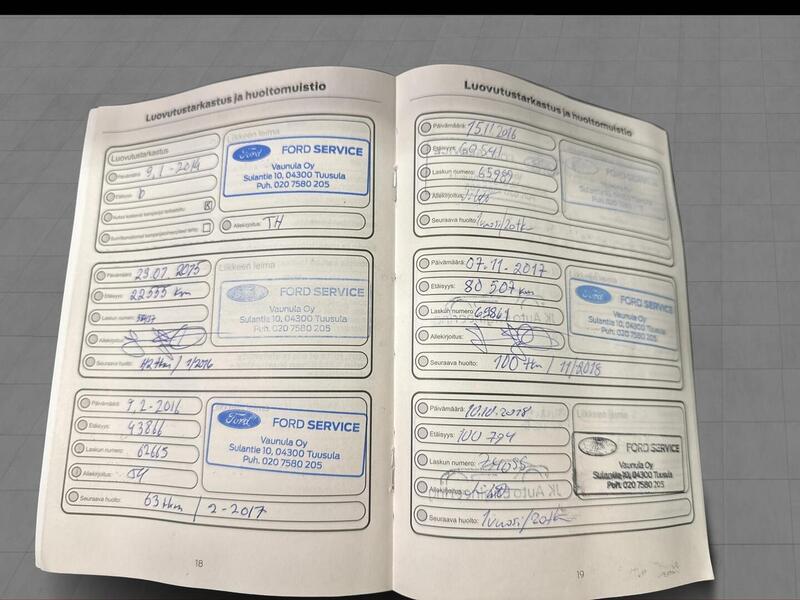 Luovutustarkastus ja huoltomuistio
Luovutustarkastus
Liikkeen leima
Päivämäärä: 9.1-2014
Etäisyys: 0
Allekirjoitus: TH
Ford FORD SERVICE
Vaunula Oy
Sulantie 10, 04300 Tuusula
Puh. 020 7580 205
Päivämäärä: 23.07.2015
Liikkeen leima
Etäisyys: 22555 km
Laskun numero:
Allekirjoitus:
Seuraava huolto: 42 tkm / 1/2016
FORD SERVICE
Vaunula Oy
Sulantie 10, 04300 Tuusula
Puh. 020 7580 205
Päivämäärä: 9.2-2016
Etäisyys: 43866
Laskun numero: 62665
Allekirjoitus:
Seuraava huolto: 63 tkm / 2-2017
Ford FORD SERVICE
Vaunula Oy
Sulantie 10, 04300 Tuusula
Puh. 020 7580 205
18
Luovutustarkastus ja huoltomuistio
Päivämäärä: 15.11.2016
Etäisyys:
Laskun numero: 65989
Allekirjoitus:
Seuraava huolto: 1vuosi/20tk
FORD SERVICE
Vaunula Oy
Sulantie 10, 04300 Tuusula
Puh. 020 7580 205
Päivämäärä: 07.11.2017
Etäisyys: 80 507 km
Laskun numero: 69861
Allekirjoitus:
Seuraava huolto: 100 tkm / 11/2018
Ford FORD SERVICE
Vaunula Oy
Sulantie 10, 04300 Tuusula
Puh. 020 7580 205
Päivämäärä: 10.10.2018
Liikkeen leima
Etäisyys: 100 794
Laskun numero:
Allekirjoitus:
Seuraava huolto: 1vuosi/20tk
FORD SERVICE
Vaunula Oy
Sulantie 10, 04300 Tuusula
Puh. 020 7580 205
19